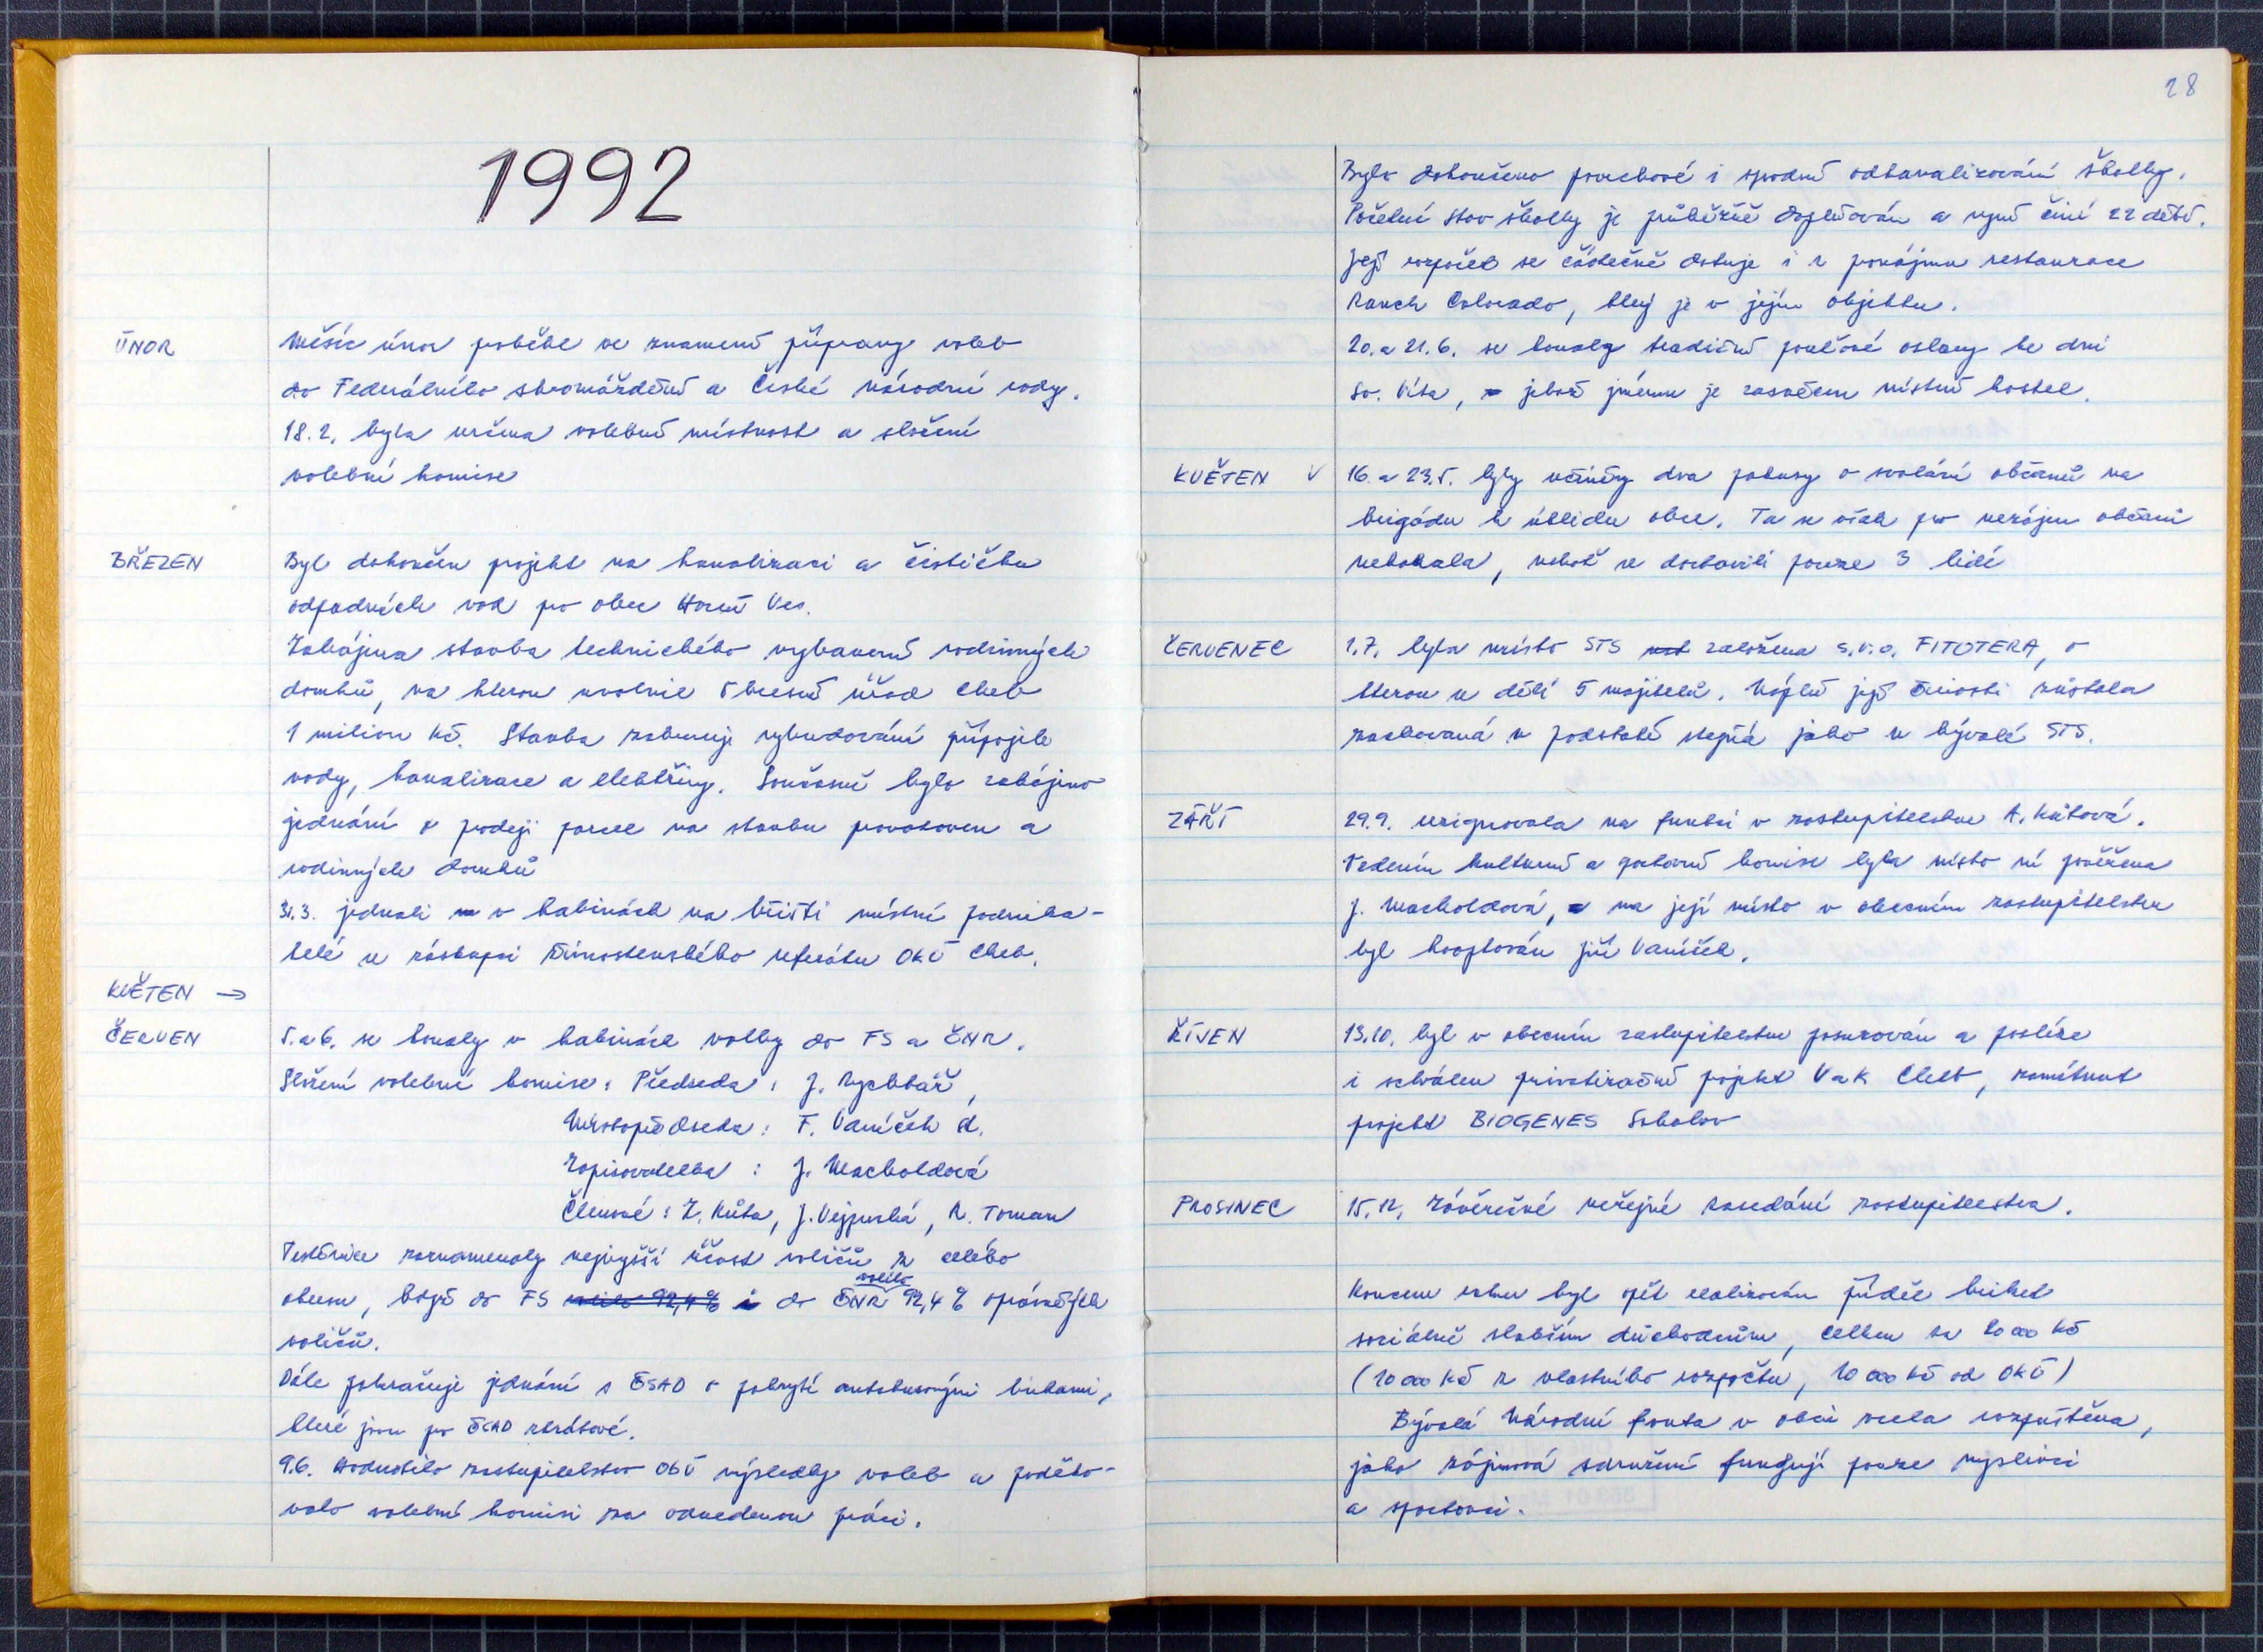 1992
ÚNOR
Měsíc únor proběhl ve znamení přípravy voleb
do Federálního shromáždění a České národní rady.
18.2. byla určena volební místnost a složení
volební komise
BŘEZEN
Byl dokončen projekt na kanalizaci a čističku
odpadních vod pro obec Horní Ves.
Zahájena stavba technického vybavení rodinných
domků, na kterou uvolnil Okresní úřad Cheb
1 milion Kč. Stavba zahrnuje vybudování přípojek
vody, kanalizace a elektřiny. Současně bylo zahájeno
jednání o prodeji parcel na stavbu provozoven a
rodinných domků
31.3. jednali v kabinách na hřišti místní podnika-
telé se zástupci živnostenského referátu OkÚ Cheb.
KVĚTEN →
ČERVEN
5. a 6. se konaly v kabinách volby do FS a ČNR.
Složení volební komise: Předseda: J. Rychtář,
Místopředseda: F. Vaníček st.
Zapisovatelka: J. Macholdová
Členové: Z. Kůta, J. Vejpuská, R. Toman
Trstěnice zaznamenaly nejvyšší účast voličů z celého
okresu, když do FS volilo 92,4% i do ČNR volilo 92,4% oprávněných
voličů.
Dále pokračuje jednání s ČSAD o pokrytí autobusovými linkami,
které jsou pro ČSAD ztrátové.
9.6. hodnotilo zastupitelstvo ObÚ výsledky voleb a poděko-
valo volební komisi za odvedenou práci.
28
Bylo dokončeno povrchové i spodní odkanalizování školky.
Početní stav školky je průběžně doplňován a nyní činí 22 dětí.
Její rozpočet se částečně dotuje i z pronájmu restaurace
Ranch Colorado, který je v jejím objektu.
20. a 21.6. se konaly tradiční pouťové oslavy ke dni
sv. Víta, jehož jménu je zasvěcen místní kostel.
KVĚTEN V
16. a 23.5. byly učiněny dva pokusy o svolání občanů na
brigádu k úklidu obce. Ta se však pro nezájem občanů
nekonala, neboť se dostavili pouze 3 lidé
ČERVENEC
1.7. byla místo STS založena s.r.o. FITOTERA, o
kterou se dělí 5 majitelů. Náplň její činnosti zůstala
zachovaná v podstatě stejná jako u bývalé STS.
ZÁŘÍ
29.9. rezignovala na funkci v zastupitelstvu A. Kůtová.
Vedením kulturní a sportovní komise byla místo ní pověřena
J. Macholdová, na její místo v obecním zastupitelstvu
byl kooptován Jiří Vaníček.
ŘÍJEN
13.10. byl v obecním zastupitelstvu posuzován a posléze
i schválen privatizační projekt VaK Cheb, zamítnut
projekt BIOGENES Sokolov
PROSINEC
15.12. Závěrečné veřejné zasedání zastupitelstva.
Koncem roku byl opět realizován příděl briket
sociálně slabším důchodcům, celkem za 20 000 Kč
(10 000 Kč z vlastního rozpočtu, 10 000 Kč od OkÚ)
Bývalá Národní fronta v obci zcela rozpuštěna,
jako zájmová sdružení fungují pouze myslivci
a sportovci.